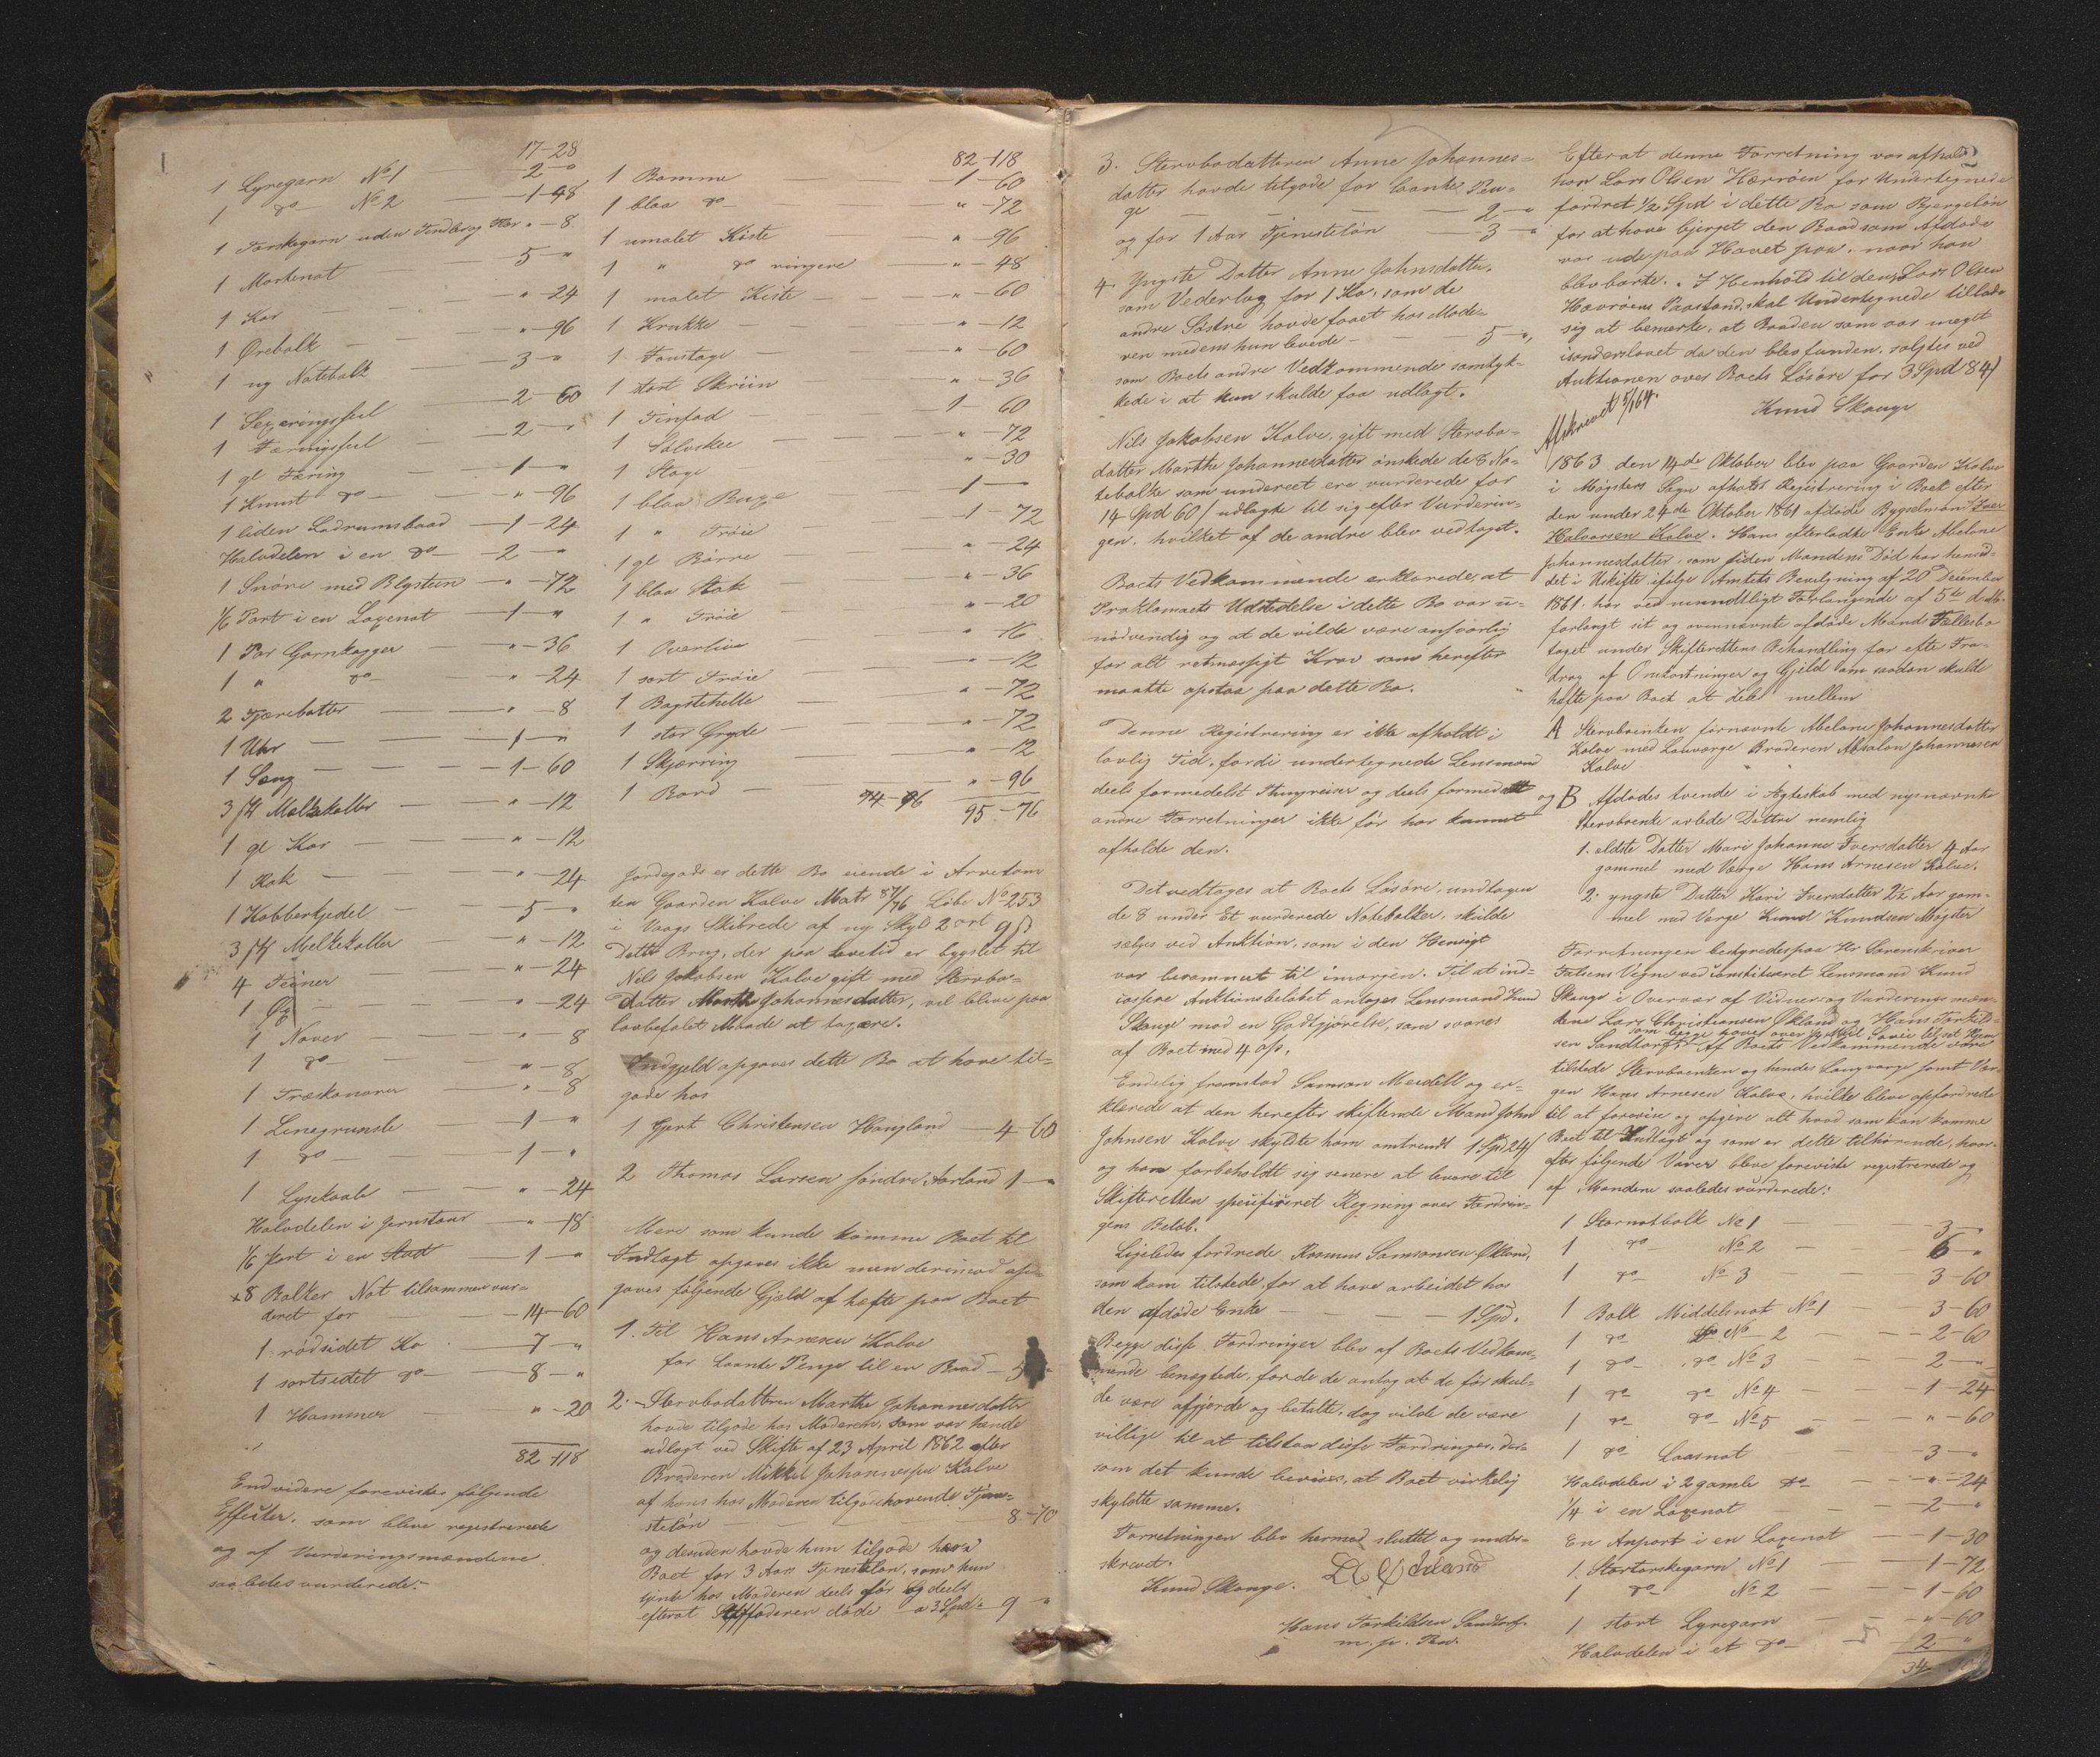 1
17-28
1 Lyregarn No 1 — 2 - "
1 do No 2 — 1-48
1 Torskegarn uden Tendler og Kar " - 8
1 Mortenot — 5 - "
1 Kar — " - 24
1 Ørebalk — " - 96
1 ny Notebalk — 3 - "
1 Sexæringsseil — 2 - 60
1 Færingsseil — 2 - "
1 gl Færing — 1 - "
1 Knust do — " - 96
1 liden Ladrumsbaad — 1 - 24
Halvdelen i en do — 2 - "
1 Snøre med Blysteen — " - 72
1/6 Part i en Laxenot — 1 - "
1 Par Garnkagger — " - 36
1 " do — " - 24
2 Tjærebøtter — " - 8
1 Uhr — 1 - "
1 Seng — 1 - 60
3 stk Melkekoller — " - 12
1 gl Kar — " - 12
1 Rok — " - 24
1 Kobberkjedel — 5 - "
3 stk Melkekoller — " - 12
4 Teiner — " - 24
1 Øx — " - 24
1 Naver — " - 8
1 do — " - 8
1 Trækanover — " - 8
1 Linegrunsle — 1 - "
1 do — 1 - "
1 Lysekaale — " - 24
Halvdelen i Jernstaur — " - 18
1/6 Part i en Stad — 1 - "
+8 Balker Not tilsammen vur-
deret for — 14 - 60
1 rødsidet Ko — 7 - "
1 sortsidet do — 8 - "
1 Hammer — " - 20
82-118
Endvidere forevistes følgende
Effecter, som bleve registrerede
og af Vurderingsmændene
saaledes vurderede:
82-118
1 Bomme — 1 - 60
1 blaa do — " - 72
1 umalet Kiste — " - 96
1 " do ringere — " - 48
1 malet Kiste — " - 60
1 Krukke — " - 12
1 Faustage — " - 60
1 stort Skriin — " - 36
1 Tinfad — 1 - 60
1 Sølvskee — " - 72
1 Stage — " - 30
1 blaa Buxe — 1 - "
1 " Trøie — 1 - 72
1 gl Børre — " - 24
1 blaa Stak — " - 36
1 " Trøie — " - 20
1 Overliv — " - 16
1 sort Trøie — " - 12
1 Bagstehelle — " - 72
1 stor Gryde — " - 72
1 Skjæring — " - 12
1 Bord — " - 96
94-96 95-76
Jordegods er dette Bo eiende i Arvetom
ten Gaarden Kalve Matr 87/76 Løbe No 253
i Vaags Skibrede af ny Skyld 2 ort 9 ß
Dette Brug, der paa Levetid er bygslet til
Nils Jakobsen Kalve gift med Stervbo-
datter Marthe Johannesdatter, vil blive paa
lovbefalet Maade at taxere.
Indgjeld opgaves dette Bo at have til-
gode hos
1 Gjert Christensen Haugland — 4 - 60
2 Thomas Larsen søndre Aarland 1 - "
Mere som kunde komme Boet til
Indtægt opgaves ikke men derimod op-
gaves følgende Gjæld at hefte paa Boet
1. Til Hans Arnesen Kalve
for laante Penge til en Baad — 5
2. Stervbodatteren Marthe Johannesdatter
havde tilgode hos Moderen, som var hende
udlagt ved Skifte af 23 April 1862 efter
Broderen Mikkel Johannessen Kalve
af hans hos Moderen tilgodehavende Tjene-
steløn — 8-70
og desuden havde hun tilgode hos
Boet for 3 Aars Tjenesteløn, som hun
tjente hos Moderen deels før og deels
efterat Stiffaderen døde a 3 Spd = 9 "
3. Stervbodatteren Anne Johannes-
datter havde tilgode for laante Pen-
ge — 2 - "
og for 1 Aar Tjenesteløn — 3 - "
4. Yngste Datter Anne Johnsdatter,
som Vederlag for 1 Ko, som de
andre Søstre havde faaet hos Mode-
ren medens hun levede — 5 - "
som Boets andre Vedkommende samtyk-
kede i at hun skulde faa udlagt.
Nils Jakobsen Kalve, gift med Stervbo-
datter Marthe Johannesdatter ønskede de 8 No-
tebalke som undereet ere vurderede for
14 Spd 60 ß udlagte til sig efter Vurderin-
gen, hvilket af de andre blev vedtaget.
Boets Vedkommende erklærede, at
Proklamaets Udstedelse i dette Bo var u-
nødvendig og at de vilde være ansvarlig
for alt retmæssigt Krav som herefter
maatte opstaa paa dette Bo.
Denne Registrering er ikke afholdt i
lovlig Tid, fordi undertegnede Lensmand
deels formedelst Thingreiser og deels formedelst
andre Forretninger ikke før har kunnet
afholde den.
Det vedtoges at Boets Løsøre, undtagen
de 8 under Et vurderede Notebalker, skulde
sælges ved Auktion, som i den Hensigt
var berammet til imorgen. Til at ind-
cassere Auktionsbeløbet antoges Lensmand Knud
Skauge mod en Godtgjørelse, som svares
af Boet med 4 ops.
Endelig fremstod Samson Meidell og er-
klærede at den herefter skiftende Mand John
Johnsen Kalve skyldte ham omtrendt 1 Spd 24 ß
og han forbeholdt sig senere at levere til
Skifteretten specificeret Regning over Fordrin-
gens Beløb.
Ligeledes fordrede Rasmus Samsonsen Økland,
som kom tilstede, for at have arbeidet hos
den afdøde Enke — 1 Spd.
Begge disse Fordringer blev af Boets Vedkom-
mende benægtede, fordi de antog at de før skul-
de være afgjorde og betalte, dog vilde de være
villige til at tilstaa disse Fordringer, der-
som det kunde bevises, at Boet virkelig
skyldte samme.
Forretningen blev hermed sluttet og under-
skrevet.
Knud Skauge. L C Økland
Hans Torkildsen Sandtorf.
m. p. Pen.
Efterat denne Forretning var afholdt
har Lars Olsen Hævrøen for Undertegnede
fordret 1/2 Spd i dette Bo som Bjergeløn
for at have bjerget den Baad som Afdøde
var ude paa Havet paa, naar han
blev borte. I Henhold til denne Lars Olsen
Hævrøens Paastand, skal Undertegnede tillade
sig at bemerke, at Baaden som var meget
isønderslaaet da den blev funden, solgtes ved
Auktionen over Boets Løsøre for 3 Spd 84 ß
Knud Skauge
Afskrevet 5/1 64.
1863 den 14de Oktober blev paa Gaarden Kalve
i Møgsters Sogn afholdt Registrering i Boet efter
den under 24de Oktober 1861 afdøde Bygselmand Iver
Halvorsen Kalve. Hans efterladte Enke Abelone
Johannesdatter, som siden Mandens Død har hensid-
det i Uskifte ifølge Amtets Bevilgning af 20 December
1861, har ved mundtligt Forlangende af 5te d. M.
forlangt sit og ovennævnte afdøde Mands Fællesbo
taget under Skifterettens Behandling for efter Fra-
drag af Omkostninger og Gjæld om saadan skulde
hefte paa Boet at dele mellem
A Stervboenken førnævnte Abelone Johannesdatter
Kalve med Laugværge Broderen Absalon Johannessen
Kalve
og B Afdødes tvende i Ægteskab med nysnævnte
Stervboenke avlede Døttre nemlig
1. ældste Datter Mari Johanne Iversdatter 4 Aar
gammel med Værge Hans Arnesen Kalve.
2. yngste Datter Kari Iversdatter 2 1/2 Aar gam-
mel med Værge Knud Knudsen Møgster
Forretningen bestyredes paa Hr Sorenskriver
Falsens Vegne ved constitueret Lensmand Knud
Skauge i Overvær af Vidner og Vurderingsmæn-
dene Lars Christiansen Økland og Hans Torkild-
sen Sandtorf. Af Boets Vedkommende vare
tilstede Stervboenken og hendes Laugværge samt Vær-
gen Hans Arnesen Kalve, hvilke bleve opfordrede
til at forevise og opgive alt hvad som kan komme
Boet til Indtægt og som er dette tilhørende, hvor-
efter følgende Varer bleve foreviste registrerede og
af Mændene saaledes vurderede:
1 Stornotbalk No 1 — 3 - "
1 do No 2 — 6 - "
1 do No 3 — 3-60
1 Balk Middelsnot No 1 3-60
1 do do No 2 — 2-60
1 do do No 3 — 2 - "
1 do do No 4 — 1-24
1 do do No 5 — " - 60
1 do Laasnot — 3 - "
Halvdelen i 2 gamle do — " - 24
1/4 i en Laxenot — 2 - "
En Anpart i en Laxenot — 1-30
1 Stortorskegarn No 1 — 1-72
1 do No 2 — 1-60
1 stort Lyregarn — " - 60
Halvdelen i et do — 2 - "
34